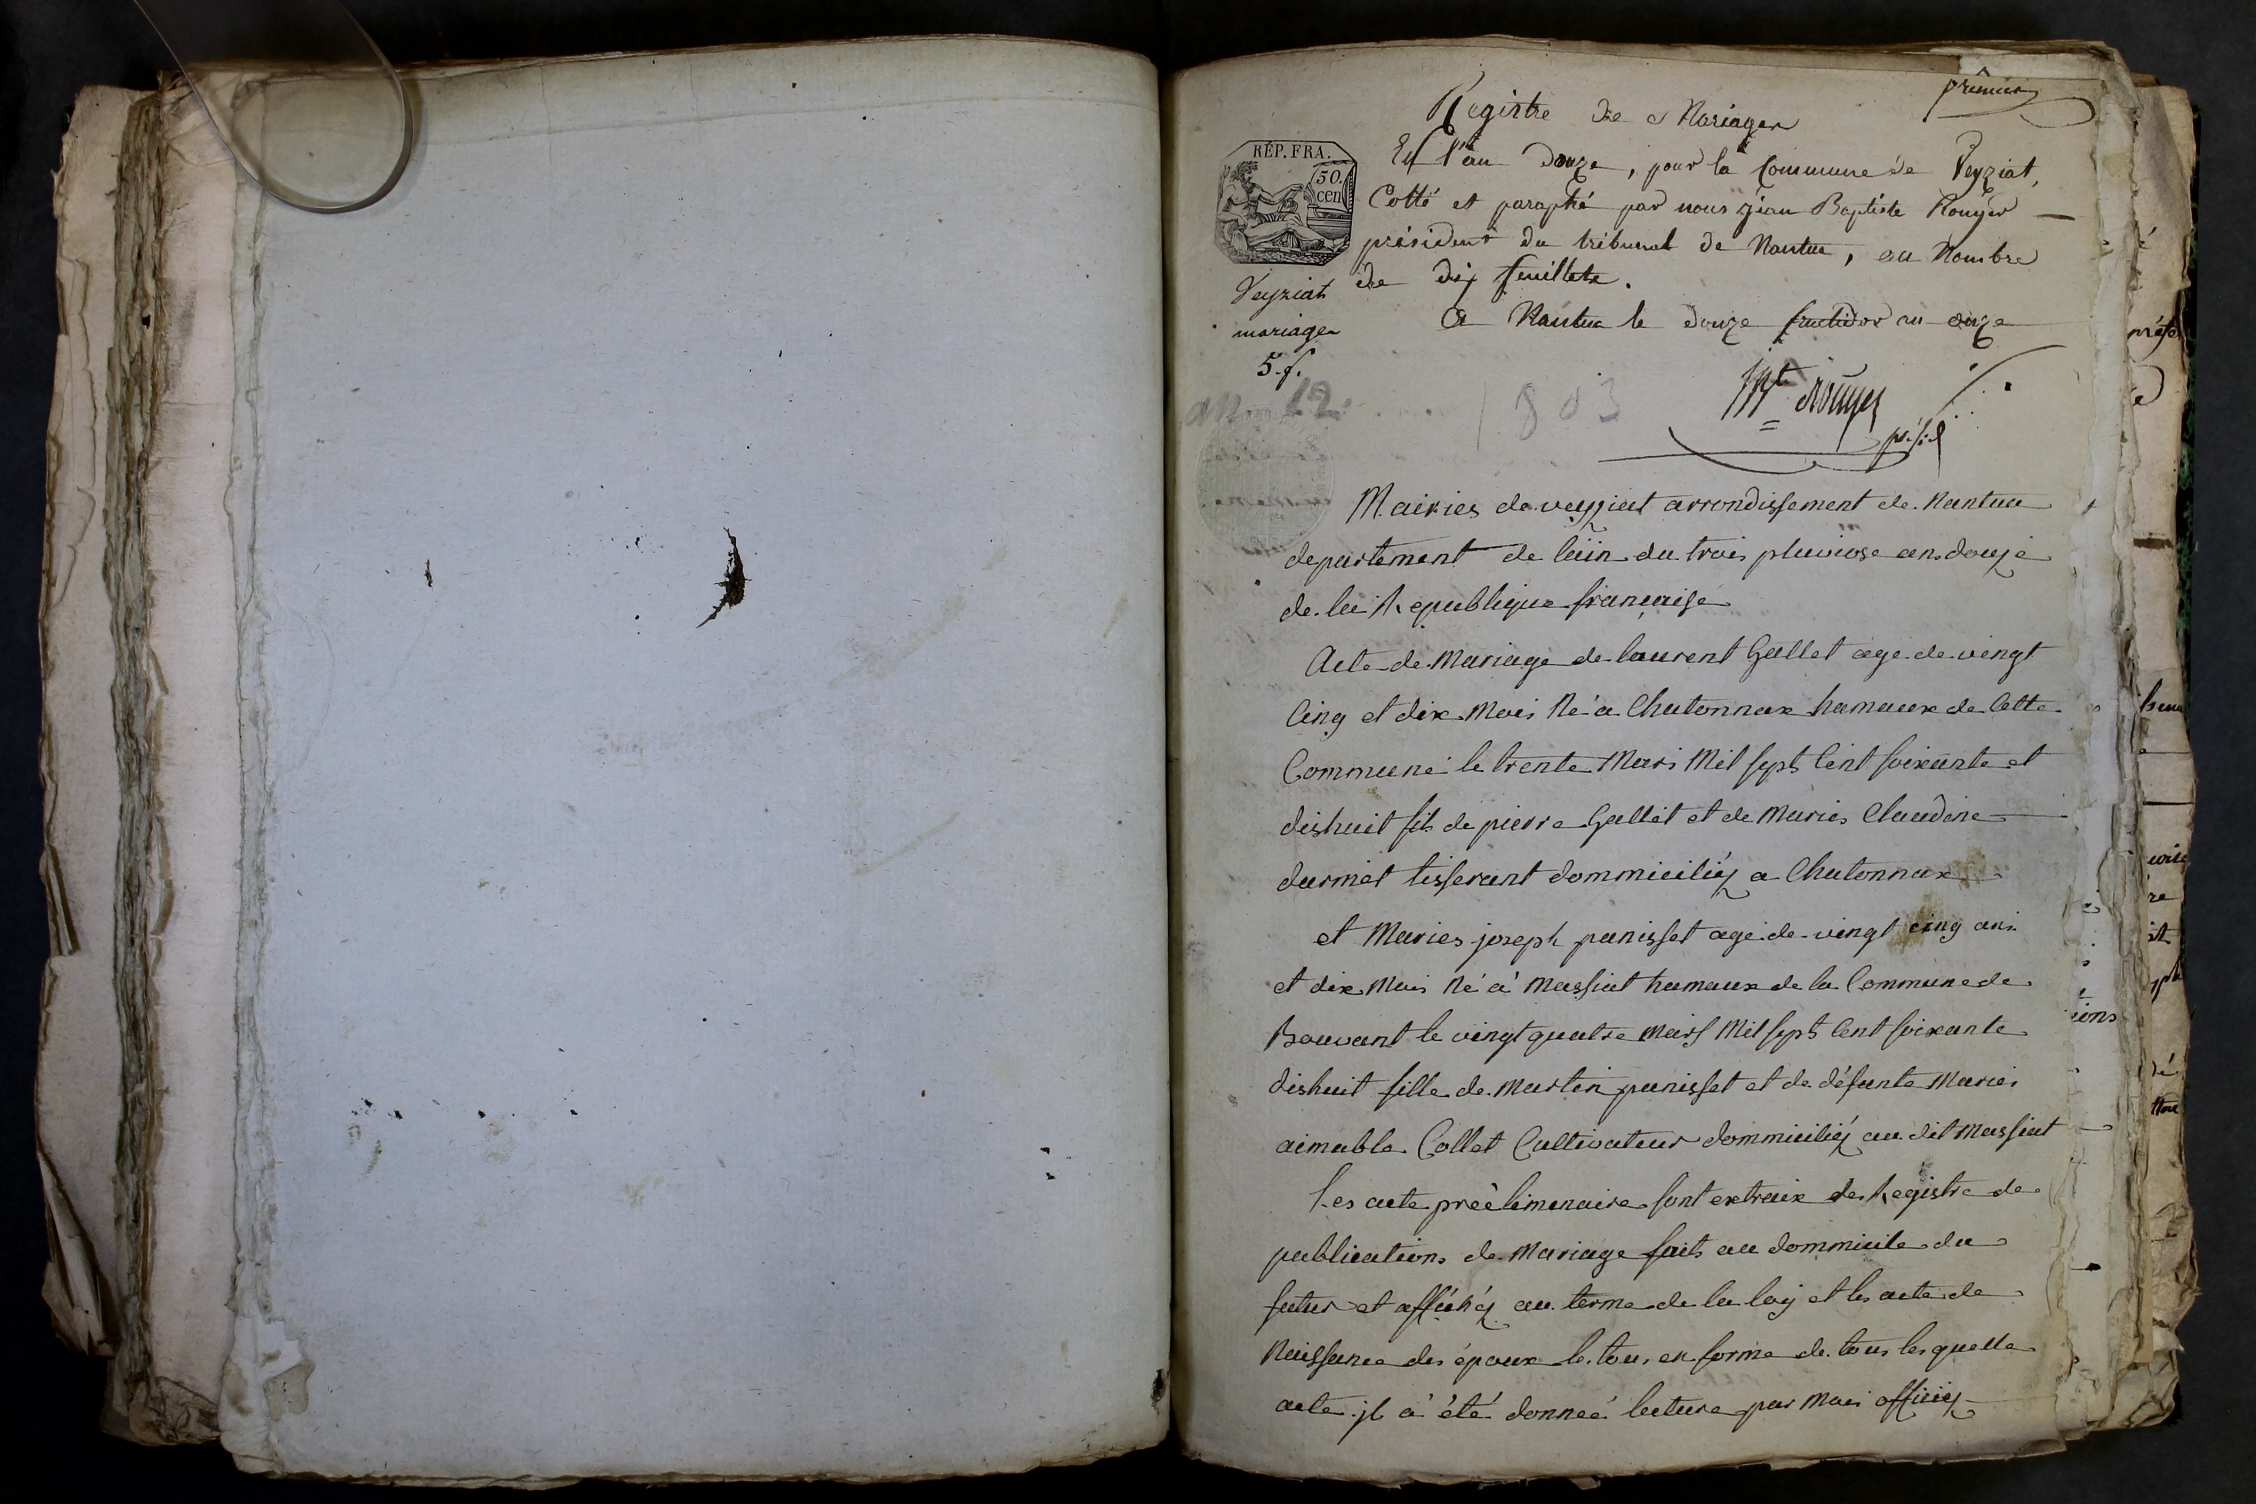 prémier
Registre de Mariages
En l'an douze, pour la Commune de Veyziat,
Cotté et paraphé par nous jean Baptiste Rouyer
président du tribunal de Nantua, au Nombre
de dix feuillets.
A Nantua le douze fructidor an onze
RÉP. FRA.
50.
cen
Veyziat
mariages
5. f.
an 12
1803
Rouyer
présid
Mairies de veyziat arrondissement de Nantua
departement de laiin du trois pluviose an douze
de la Republique française
Acte de Mariage de laurent Gallet age de vingt
Cinq et dix Mois Né a Chatonnax hamaux de Cette
Commune le trente Mars Mil sept Cent soixante et
dishuit fils de pierre Gallet et de Maries Claudine
darmet tisserant dommiciliéz a Chatonnax
et Maries joseph panisset age de vingt cinq ans
et dix Mois Né à Massiat hamaux de la Commune de
Bouvant le vingt quatre Mars Mil sept Cent soixante
dishuit fille de Martin panisset et de défunte Maries
aimable Collet Cultivateur dommiciliéz au dit Massiat
Les acte préèlimenaire sont extraix des Registre de
publications de Mariage faits au dommicile du
futur et affichéz au terme de la loy et les acte de
Naissance des époux le tous en forme de tous lesquelle
acte jl à été donneé lecture par Moi officiéz